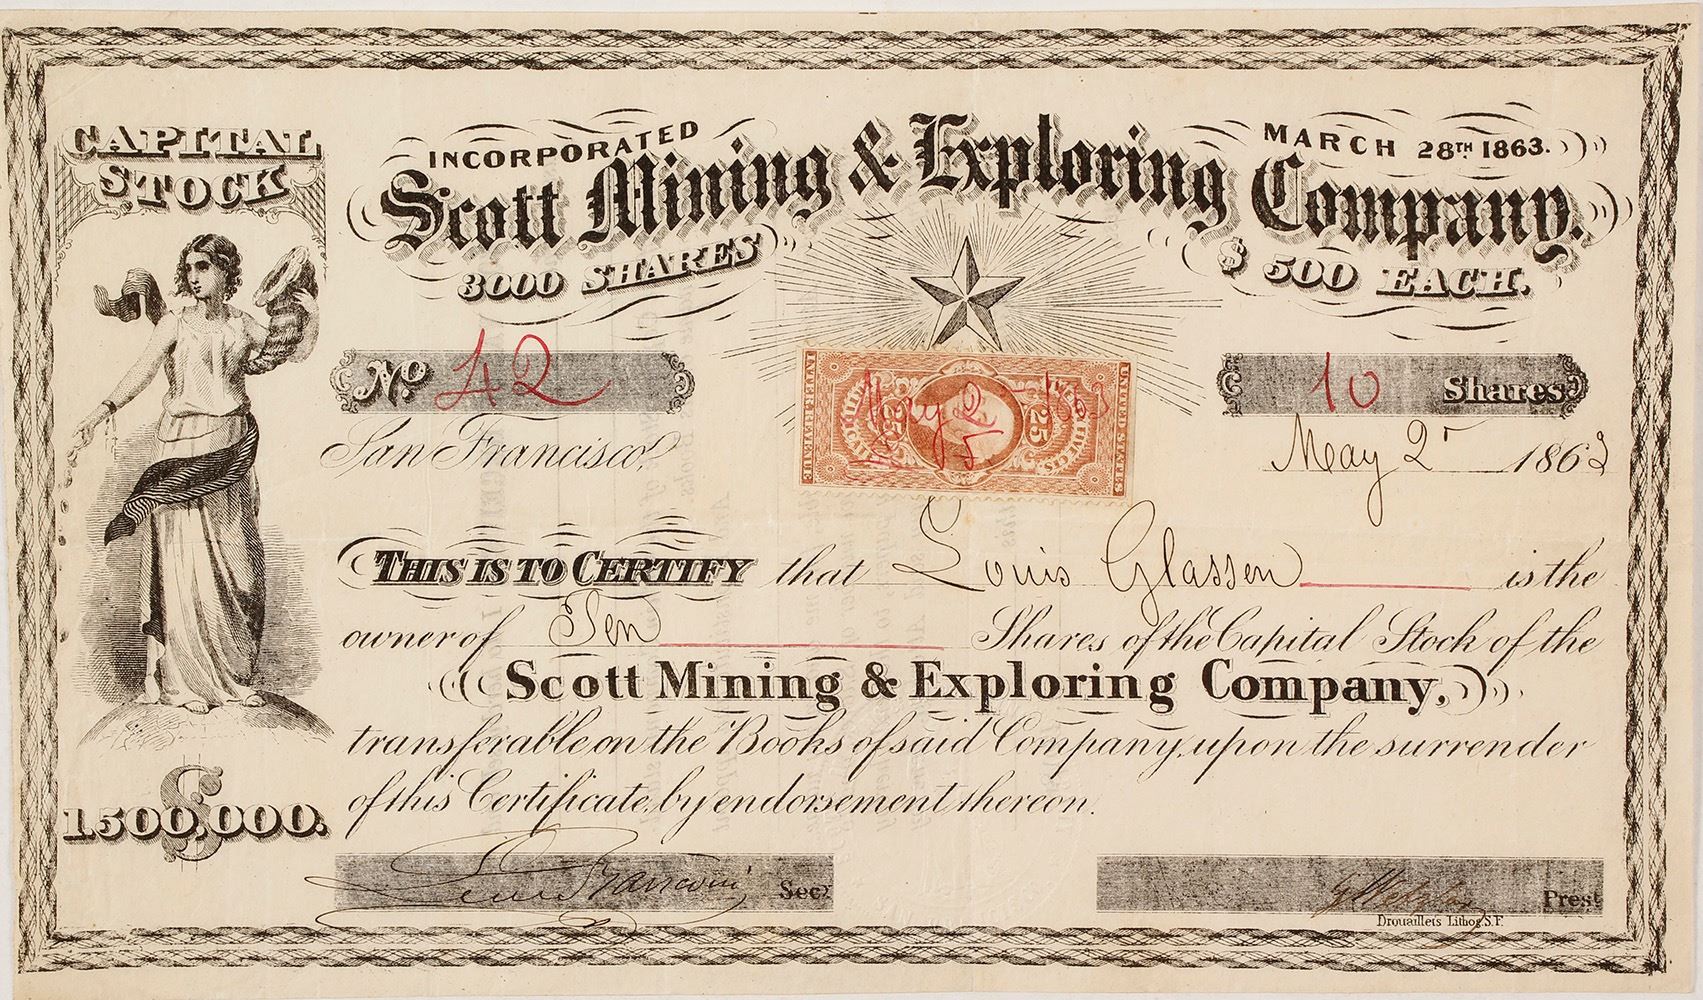 CAPITAL
STOCK
INCORPORATED
MARCH 28TH 1863.
Scott Mining & Exploring Company.
3000 SHARES
$500 EACH.
No 42
10 Shares
UNITED STATES
INTER. REVENUE
25 25
San Francisco,
May 2 1863
THIS IS TO CERTIFY that Louis Glassen is the
owner of Ten Shares of the Capital Stock of the
Scott Mining & Exploring Company,
transferable on the Books of said Company, upon the surrender
of this Certificate, by endorsement thereon.
$
1500,000.
Sec.
Prest
Drouaillets Lithog. S.F.